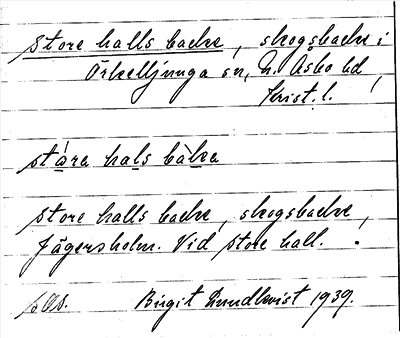 Store halls backe, skogsbacke i
Örkelljunga sn, N. Åsbo hd,
Krist. l.
stára hals bàka
Store halls backe, skogsbacke,
Jägersholm. Vid Store hall.
Birgit Lundkvist 1939.